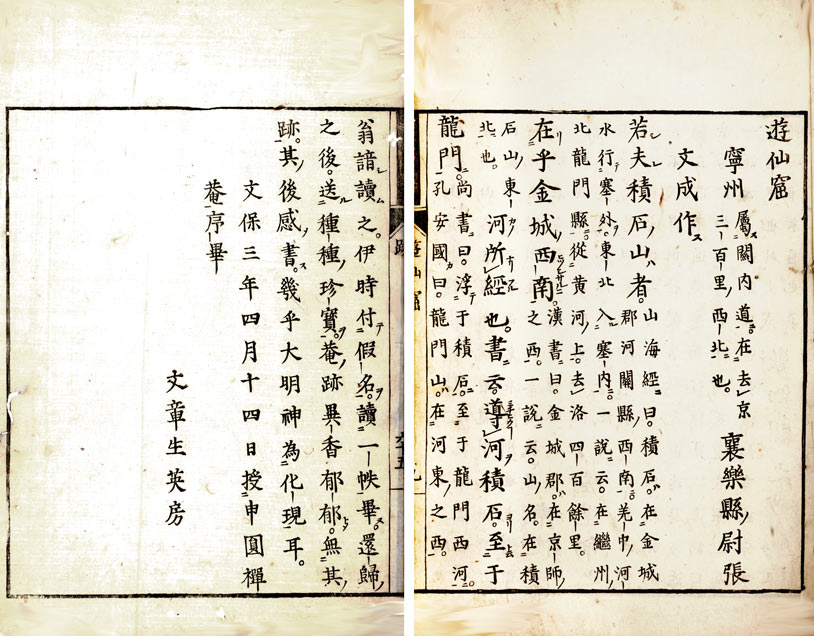 遊仙窟
寧州屬關内道。在去京三百里西北也。襄樂縣尉張
文成作
若夫積石山者。山海經曰。積石。在金城郡河關縣西南。羌中河
水行塞外。東北入塞内。一說云。在繼州
北龍門縣。從黄河上去洛四百餘里。
在乎金城西南。漢書曰。金城郡。在京師之西。一說云。山名。在積
石山東北也。河所經也。書云。導河積石。至于
龍門。尚書曰。浮于積石。至于龍門西河。孔安國曰。龍門山。在河東之西。
遊仙窟
翁諳讀之。伊時付假名。讀一帙畢。還歸
之後。送種種珍寶。菴跡異香郁郁。無其
跡。其後感書。幾乎大明神為化現耳。
文保三年四月十四日授申圓禪
菴序畢
文章生英房